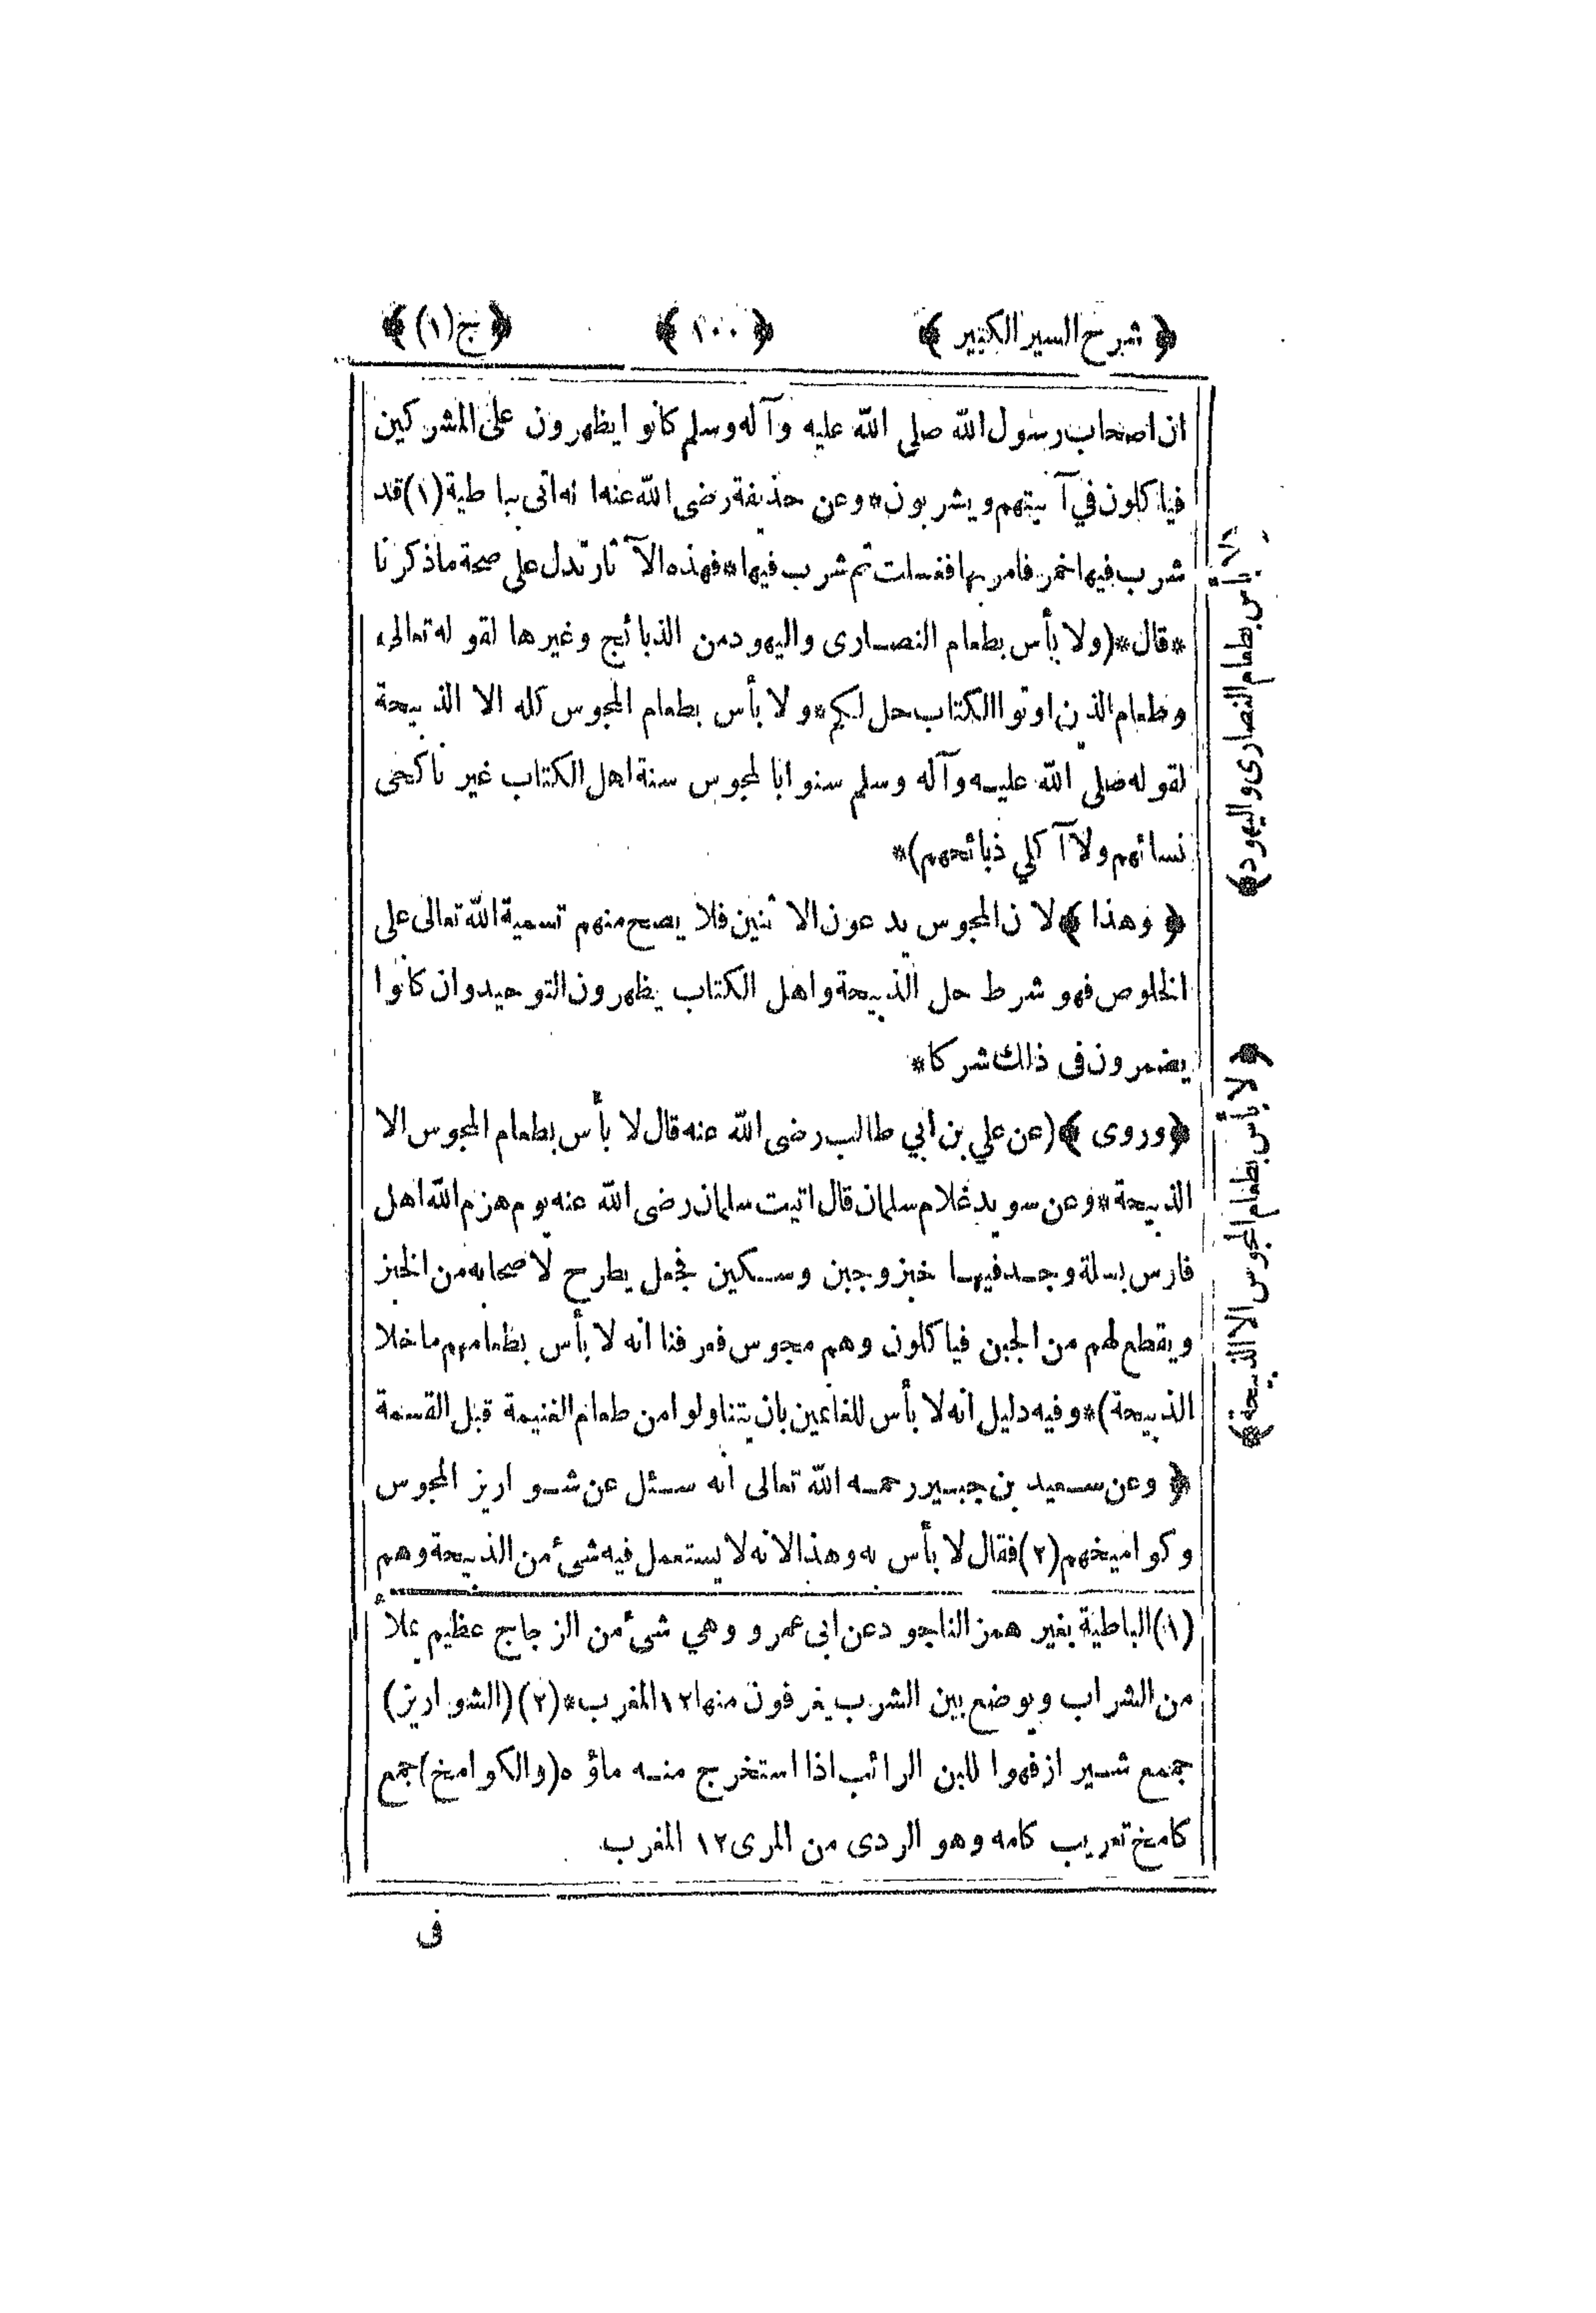 ﴿ شرح السير الكبير ﴾ ﴿ ١٠٠ ﴾ ﴿ ج(١) ﴾
ان اصحاب رسول الله صلى الله عليه وآله وسلم كانوا يظهرون على المشركين
فياكلون في آنيتهم ويشربون*وعن حذيفة رضى الله عنه انه اتى بباطية(١)قد
شرب فيها خمر فامر بها فغسلت ثم شرب فيها*فهذه الآثار تدل على صحة ماذكرنا
*قال*(ولا بأس بطعام النصارى واليهود من الذبائح وغيرها لقوله تعالى*
وطعام الذين اوتوا الكتاب حل لكم*ولا بأس بطعام المجوس كله الا الذبيحة
لقوله صلى الله عليه وآله وسلم سنوا بالمجوس سنة اهل الكتاب غير ناكحى
نسائهم ولا آكلي ذبائحهم)*
﴿ وهذا ﴾لان المجوس يدعون الاثنين فلا يصح منهم تسمية الله تعالى على
الخلوص فهو شرط حل الذبيحة واهل الكتاب يظهرون التوحيد وان كانوا
يضمرون فى ذلك شركا*
﴿وروى ﴾(عن علي بن ابي طالب رضى الله عنه قال لا بأس بطعام المجوس الا
الذبيحة*وعن سويد غلام سلمان قال اتيت سلمان رضى الله عنه يوم هزم الله اهل
فارس بسلة وجد فيها خبز وجبن وسكين فجعل يطرح لاصحابه من الخبز
ويقطع لهم من الجبن فياكلون وهم مجوس فعرفنا انه لا بأس بطعامهم ماخلا
الذبيحة)*وفيه دليل انه لا بأس للغانمين بان يتناولوا من طعام الغنيمة قبل القسمة
﴿ وعن سعيد بن جبير رحمه الله تعالى انه سئل عن شواريز المجوس
وكواميخهم(٢)فقال لا بأس به وهذا لانه لا يستعمل فيه شئ من الذبيحة وهم
(١)الباطية بغير همز الناجود عن ابى عمرو وهي شئ من الزجاج عظيم تملأ
من الشراب ويوضع بين الشرب يغرفون منها١٢المغرب*(٢)(الشواريز)
جمع شيراز فهو اللبن الرائب اذا استخرج منه ماؤه(والكوامخ)جمع
كامخ تعريب كامه وهو الردى من المرى١٢ المغرب
فى
لا بأس بطعام النصارى واليهود﴾
﴿لا بأس بطعام المجوس الا الذبيحة﴾